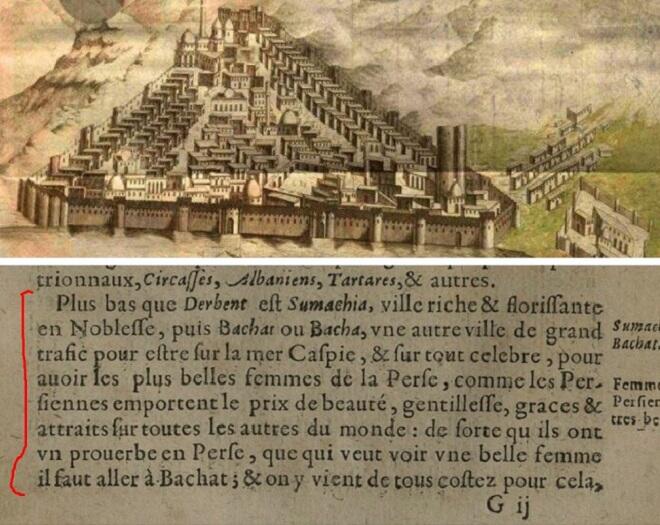 trionnaux, Circasses, Albaniens, Tartares, & autres.
Plus bas que Derbent est Sumachia, ville riche & florissante
en Noblesse, puis Bachat ou Bacha, vne autre ville de grand
trafic pour estre sur la mer Caspie, & sur tout celebre, pour
auoir les plus belles femmes de la Perse, comme les Per-
siennes emportent le prix de beauté, gentillesse, graces &
attraits sur toutes les autres du monde : de sorte qu ils ont
vn prouerbe en Perse, que qui veut voir vne belle femme
il faut aller à Bachat ; & on y vient de tous costez pour cela,
G ij
Bachat.
Femme
Persien
tres-be